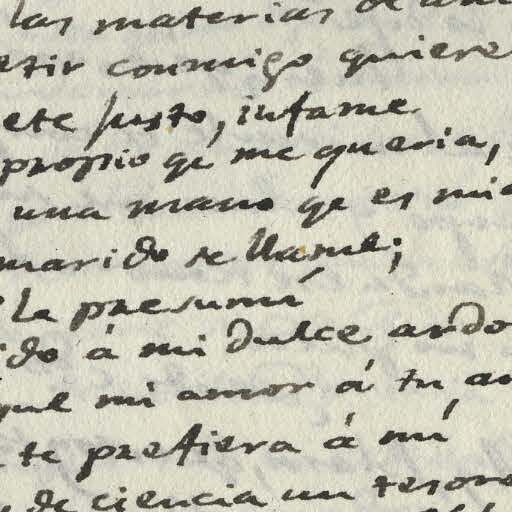 las materias de
etir conmigo quiere
ete justo, infame
propio qe me queria,
una mano qe es mia
marido se llame;
la presumí
ido á mi dulce ardo
que mi amor á tu
te prefiera á mí
de ciencia un tesoro